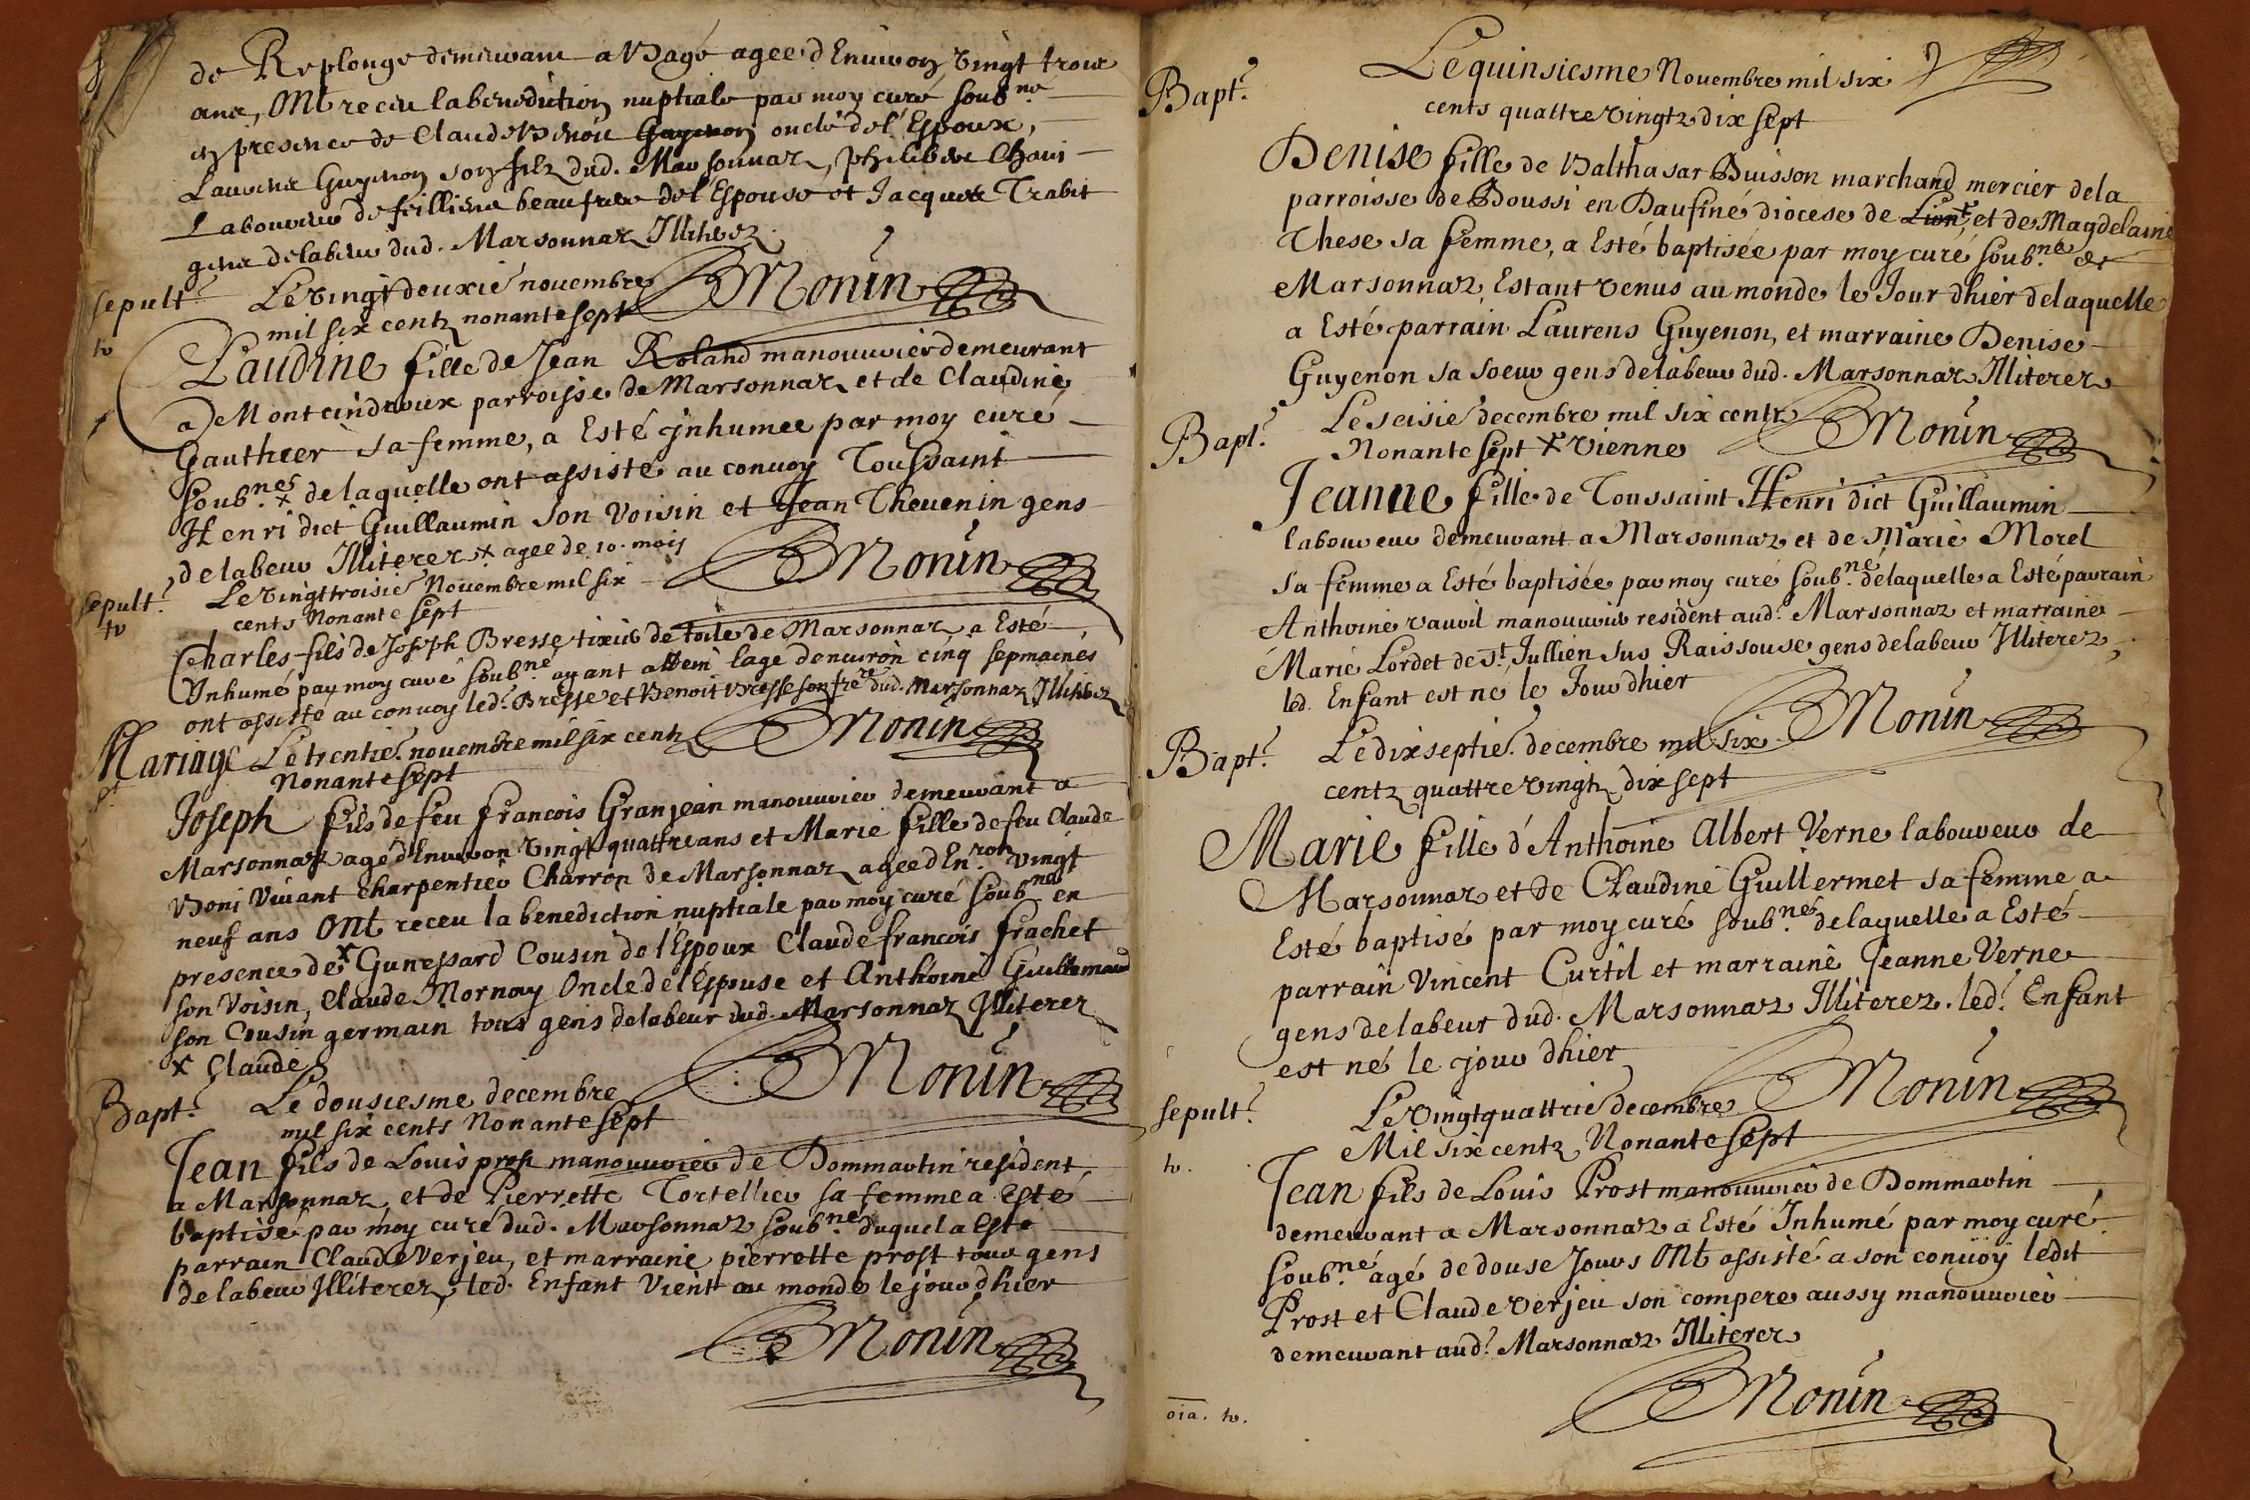 de Replonge demeurant a Bagé agee d'Environ vingt trois
ans, Ont receu la benediction nuptiale par moy curé soub.né
en presence de Claude Benoit Guyenon oncle de l'Espoux,
Laurens Guyenon son fils dud. Marsonnaz, philibert
Laboureur de feilliens beaufrere de l'Espouse et Jacques Trabit
gens delabeur dud. Marsonnaz Illiterez.
Monin
sepult.e
Le vingt deuxié novembre
mil six centz nonante sept
Claudine fille de Jean Roland manouuvrier demeurant
a Montcindroux parroisse de Marsonnaz et de Claudine
Gauthier sa femme, a Esté jnhumee par moy curé
soub.nes x de laquelle ont assisté au convoy Toussaint
Henri dict Guillaumin son voisin et Jean Thevenin gens
delabeur Illiterez x agee de 10. mois
Monin
sepult.e
Le vingt troisié Novembre mil six
cents Nonante sept
Charles fils de Joseph Bresse tixier de toile de Marsonnaz, a Esté
Inhumé par moy curé soub.né ayant attein lage denviron cinq sepmaines
ont assisté au convoy led.t Bresse et Benoit Bresse son frere dud. Marsonnaz Illiterez
Monin
Mariage
Le trentie. novembre mil six centz
Nonante sept
Joseph fils de feu francois Granjean manouuvrier demeurant a
Marsonnaz agé d'Environ vingt quattre ans et Marie fille de feu Claude
Boni Vivant Charpentier Charron de Marsonnaz agee d'En.ron vingt
neuf ans Ont receu la benediction nuptiale par moy curé soub.né en
presence de x Gunessard Cousin de l'Espoux Claude francois frachet
son Voisin, Claude Mornay Oncle de l'Espouse et Anthoine Guillemaud
son Cousin germain tous gens delabeur dud. Marsonnaz Illiterez
x Claude
Monin
Bapt.e
Le dousiesme decembre
mil six cents Nonante sept
Jean fils de Louis prost manouuvrier de Dommartin resident
a Marsonnaz, et de Pierrette Tortellier sa femme a Esté
baptisé par moy curé dud. Marsonnaz soub.né duquel a Esté
parrain Claude Verjeu, et marraine pierrette prost tous gens
delabeur Illiterez, led. Enfant Vient au monde le jour dhier
Monin
Bapt.e
Le quinsiesme Novembre mil six
cents quattre vingtz dix sept
Denise fille de Balthasar Buisson marchand mercier de la
parroisse de Doussi en Daufiné diocese de Lion x, et de Magdelaine
These sa femme, a Esté baptisée par moy curé soub.né de
Marsonnaz Estant venus au monde le Jour dhier de laquelle
a Esté parrain Laurens Guyenon, et marraine Denise
Guyenon sa soeur gens delabeur dud. Marsonnaz Illiterez
Monin
Bapt.e
Le seisié decembre mil six centz
Nonante sept x Vienne
Jeanne fille de Toussaint Henri dict Guillaumin
laboureur demeurant a Marsonnaz et de Marie Morel
sa femme a Esté baptisée par moy curé soub.né de laquelle a Esté parrain
Anthoine vauvil manouuvrier resident aud.t Marsonnaz et marraine
Marie Lordet de St Jullien sus Raissouse gens delabeur Illiterez,
led. Enfant est né le Jour dhier
Monin
Bapt.e
Le dix septié. decembre mil six
centz quattre vingtz dix sept
Marie fille d'Anthoine Albert Verne laboureur de
Marsonnaz et de Claudine Guillermet sa femme a
Esté baptisé par moy curé soub.né de laquelle a Esté
parrain Vincent Curtil et marraine Jeanne Verne
gens delabeur dud. Marsonnaz Illiterez. led.t Enfant
est né le jour dhier
Monin
sepult.e
Le vingt quattrié decembre
Mil six centz Nonante sept
Jean fils de Louis Prost manouuvrier de Dommartin
demeurant a Marsonnaz a Esté Inhumé par moy curé
soub.né agé de douse Jours Ont assisté a son convoy ledit
Prost et Claude Verjeu son compere aussy manouuvrier
demeurant aud.t Marsonnaz Illiterez
Monin